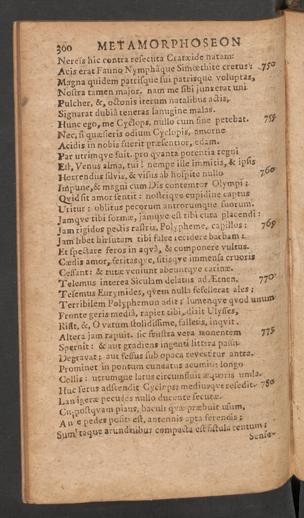 300 METAMORPHOSEON
Nereis hic contra resecuta Crataide natam:
Acis erat Fauno Nymphâque Simœthite cretus: 750
Magna quidem patrisque sui patrisque voluptas,
Nostra tamen major. nam me sibi junxerat uni.
Pulcher, &, octonis iterum natalibus actis,
Signarat dubiâ teneras lanugine malas.
Hunc ego, me Cyclops, nullo cum fine petebat. 755
Nec, si quæsieris odium Cyclopis, amorne
Acidis in nobis fuerit præsentior, edam.
Par utrimque fuit. pro quanta potentia regni
Est, Venus alma, tui! nempe ille immitis, & ipsis
Horrendus silvis, & visus ab hospite nullo 760
Impune, & magni cum Dis contemtor Olympi;
Quid sit amor sentit: nostrique cupidine captus
Uritur; oblitus pecorum antrorumque suorum.
Jamque tibi formæ, jamque est tibi cura placendi:
Jam rigidos pectis rastris, Polypheme, capillos: 765
Jam libet hirsutam tibi falce recidere barbam:
Et spectare feros in aquâ, & componere vultus.
Cædis amor, feritasque, sitisque immensa cruoris
Cessant: & tutæ veniunt abeuntque carinæ.
Telemus interea Siculam delatus ad Ætnen, 770
Telemus Eurymides, quem nulla fefellerat ales;
Terribilem Polyphemon adit: lumenque quod unum
Fronte geris mediâ, rapiet tibi, dixit Ulysses.
Risit, &, O vatum stolidissime, falleris, inquit.
Altera jam rapuit. sic frustra vera monentem 775
Spernit: & aut gradiens ingenti littora passu
Degravat; aut fessus sub opaca revertitur antra.
Prominet in pontum cuneatus acumine longo
Collis: utrumque latus circumfluit æquoris unda.
Huc ferus adscendit Cyclops; mediusque resedit. 780
Lanigeræ pecudes nullo ducente secutæ.
Cui postquam pinus, baculi quæ præbuit usum,
Ante pedes posita est, antennis apta ferendis;
Sumtaque arundinibus compacta est fistula centum:
Sense-